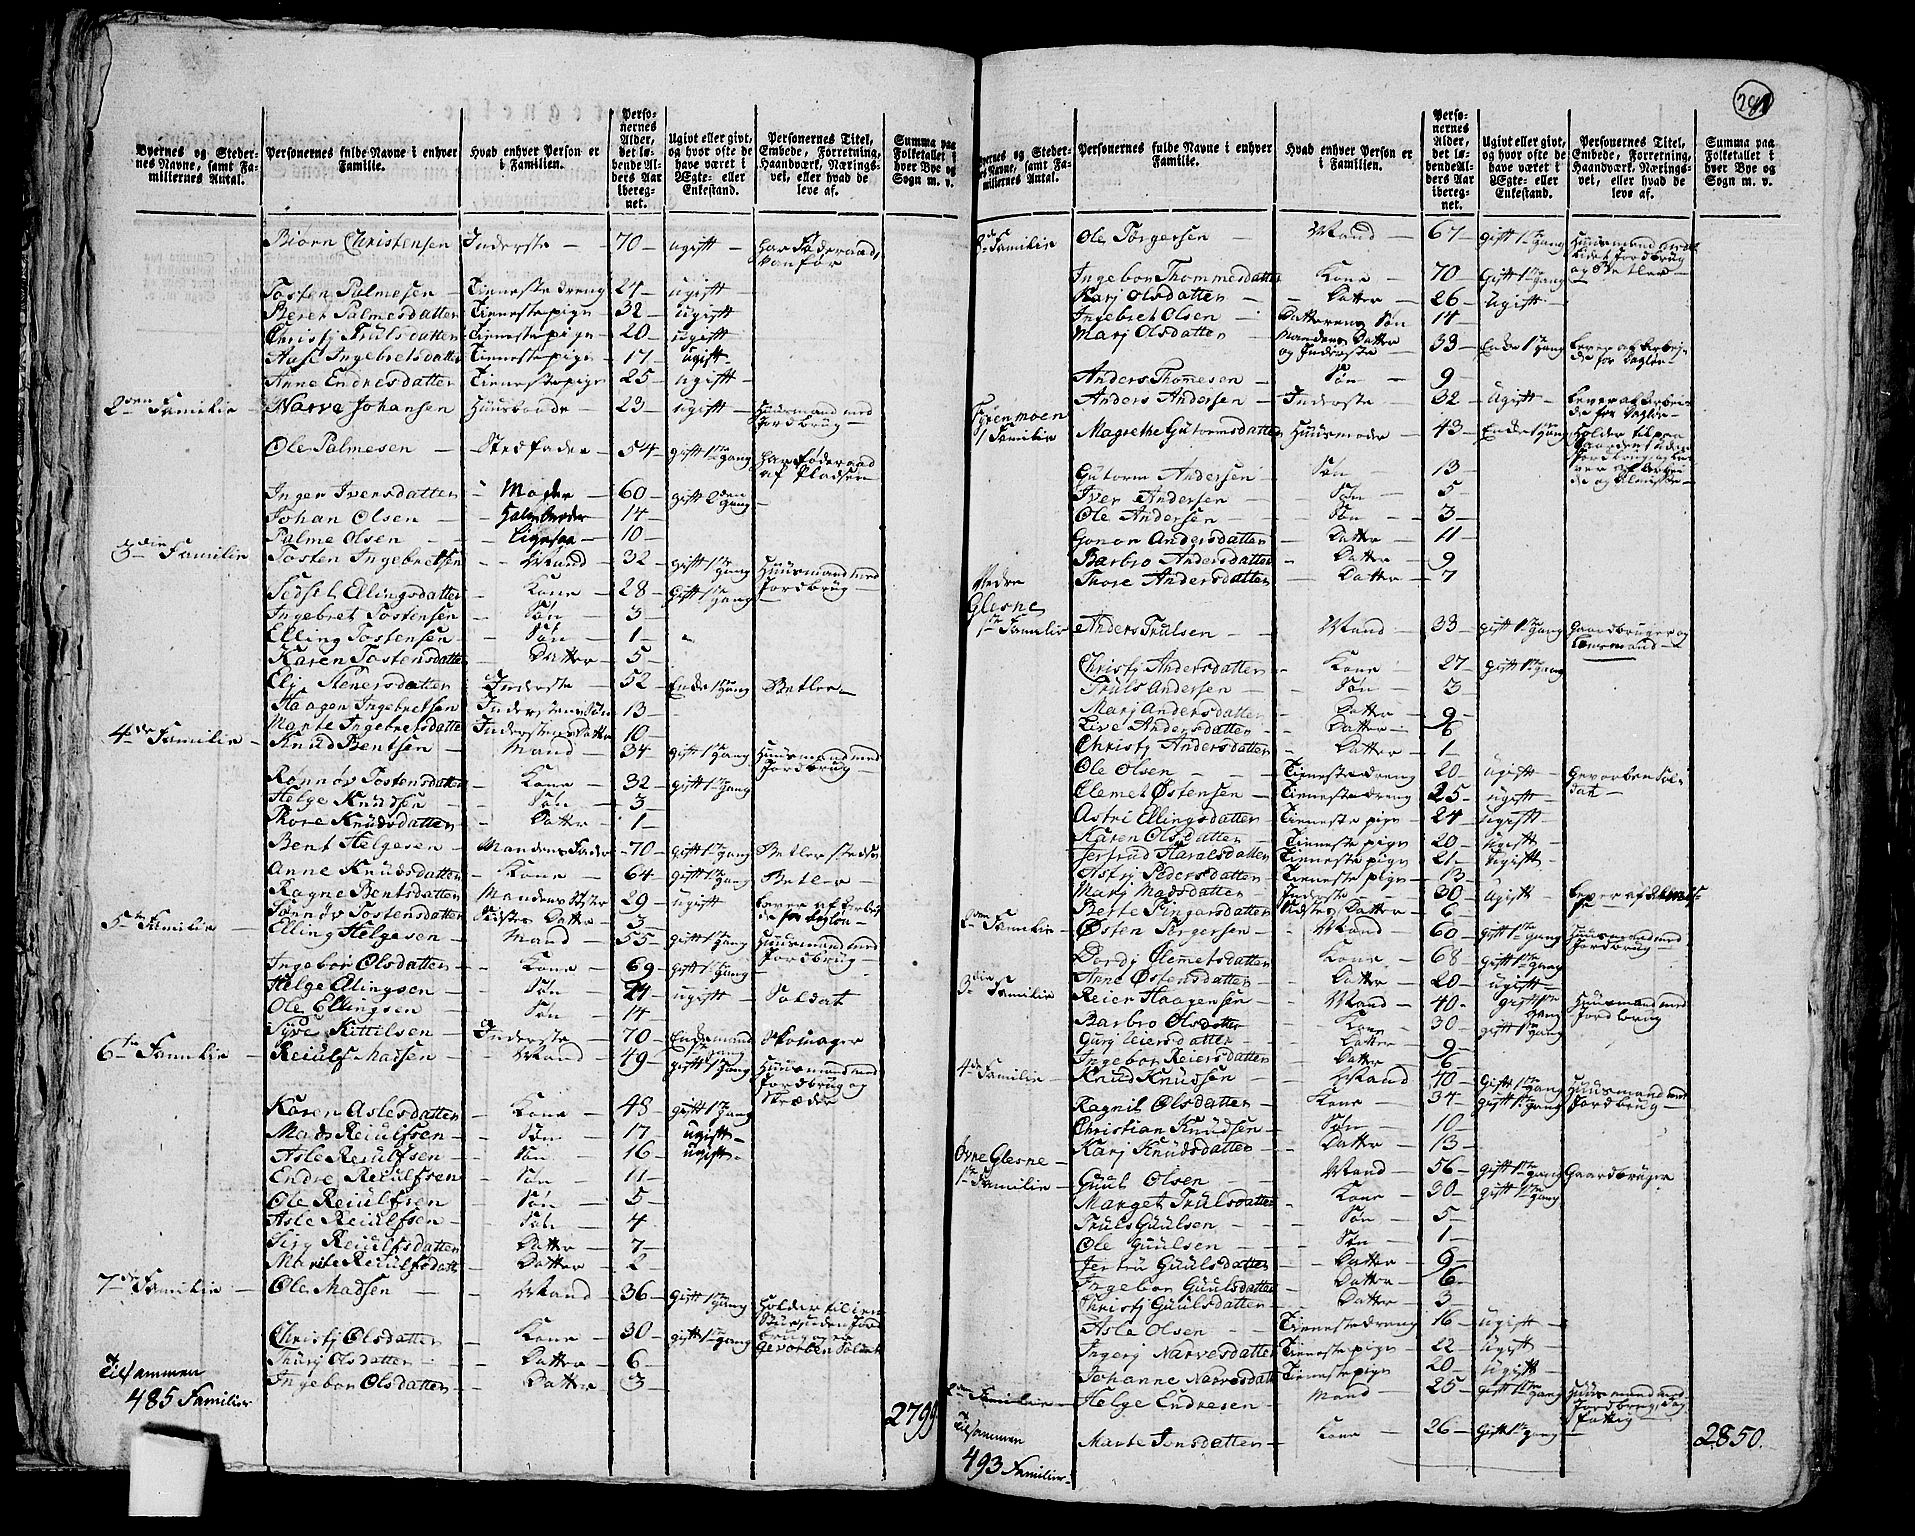 281
Byernes og Stedernes Navne, samt Familiernes Antal.
Personernes fulde Navne i enhver Familie.
Hvad enhver Person er i Familien.
Personernes Alder, det løbende Alders Aar iberegnet.
Ugivt eller givt, og hvor ofte de have været i Ægte- eller Enkestand.
Personernes Titel, Embede, Forretning, Haandværk, Næringsvei, eller hvad de leve af.
Summa paa Folketallet i hver Bye og Sogn m. v.
Biørn Christensen Inderste 70 ugift har Føderaad, vanfør
Tosten Palmesen Tienestedreng 24 ugift
Beret Palmesdatter Tienestepige 32 ugift
Christj Trulsdatter Tienestepige 20 ugift
Aase Ingebretsdatter Tienestepige 17 ugift
Anne Endresdatter Tienestepige 25 ugift
2den Familie Narve Johansen Huusbonde 23 ugift Huusmand med Jordbrug
Ole Palmesen Stedfader 54 gift 1ste gang har Føderaad af Pladsen
Inger Iversdatter Moder 60 gift 2den gang
Johan Olsen Halvbroder 14
Palme Olsen Ligesaa 10
3die Familie Tosten Ingebretsen Mand 32 gift 1ste gang Huusmand med Jordbrug
Sidsel Ellingsdatter Kone 28 gift 1ste gang
Ingebret Tostensen Søn 3
Elling Tostensen Søn 1
Karen Tostensdatter Datter 5
Elj Stenersdatter Inderste 52 Enke 1 gang Betler
Haagen Ingebretsen Inderstens Søn 13
Marte Ingebretsdatter Inderstens Datter 10
4de Familie Knud Bentsen Mand 34 gift 1ste gang Huusmand med Jordbrug
Rønnøv Tostensdatter Kone 32 gift 1ste gang
Helge Knudsen Søn 3
Thore Knudsdatter Datter 1
Bent Helgesen Mandens Fader 70 gift 1ste gang Betler
Anne Knudsdatter Kone 64 gift 1ste gang Betler
Ragne Bentsdatter Mandens Syster 29 ugift Lever af Arbeide for Dagløn
Sønnøv Tostensdatter Sidstes Datter 3
5te Familie Elling Helgesen Mand 55 gift 1ste gang Huusmand med Jordbrug
Ingebor Olsdatter Kone 69 gift 1ste gang
Helge Ellingsen Søn 24 ugift Soldat
Ole Ellingsen Søn 14
Syver Kittilsen Inderste 70 Enkemand 1ste gang Skomager
6te Familie Reiulf Madsen Mand 49 gift 1ste gang Huusmand med Jordbrug og Skræder
Karen Aslesdatter Kone 43 gift 1ste gang
Mads Reiulfsen Søn 17 ugift
Asle Reiulfsen Søn 16 ugift
Endre Reiulfsen Søn 11
Ole Reiulfsen Søn 5
Asle Reiulfsen Søn 4
Sigj Reiulfsdatter Datter 7
Marte Reiulfsdatt Datter 2
7de Familie Ole Madsen Mand 36 gift 1ste gang Holder til i en Stue uden Jordbrug og er gevorben Soldat
Christj Olsdatter Kone 30 gift 1ste gang
Thurj Olsdatter Datter 6
Ingebor Olsdatter Datter 3
Tilsammen
485 Familier
2799
Byernes og Stedernes Navne, samt Familiernes Antal.
Personernes fulde Navne i enhver Familie.
Hvad enhver Person er i Familien.
Personernes Alder, det løbende Alders Aar iberegnet.
Ugivt eller givt, og hvor ofte de have været i Ægte- eller Enkestand.
Personernes Titel, Embede, Forretning, Haandværk, Næringsvei, eller hvad de leve af.
Summa paa Folketallet i hver Bye og Sogn m. v.
8de Familie Ole Torgersen Mand 67 gift 1ste gang Huusmand med lidet Jordbrug og Betler
Ingebor Thommesdatter Kone 70 gift 1ste gang
Karj Olsdatter Datter 26 ugift
Ingebret Olsen Datterens Søn 14
Marj Olsdatter Mandens Datter og Inderste 33 Enke 1ste gang Lever af Arbeide for Dagløn
Anders Thomesen Søn 9
Anders Andersen Inderste 32 ugift Lever af Arbeide for Dagløn
Fyrenmoen
1 Familie Magrethe Gutormsdatter Huusmoder 43 Enke 1 gang Holder til paa Gaarden uden Jordbrug og lever af Arbeide og Almisse
Gutorm Andersen Søn 13
Iver Andersen Søn 5
Ole Andersen Søn 3
Gonor Andersdatter Datter 11
Barbro Andersdatter Datter 9
Thore Andersdatter Datter 7
Nedre Glesne
1ste Familie Anders Trulsen Mand 33 gift 1ste gang Gaardbruger og Lensmand
Christj Andersdatter Kone 27 gift 1ste gang
Truls Andersen Søn 3
Marj Andersdatter Datter 9
Live Andersdatter Datter 6
Christj Andersdatter Datter 1
Ole Olsen Tienestedreng 20 ugift Gevorben Soldat
Clemet Østensen Tienestedreng 25 ugift
Astri Ellingsdatter Tienestepige 24 ugift
Karen Olsdatter Tienestepige 20 ugift
Jertrud Haralsdatter Tienestepige 21 ugift
Astrj Pedersdatter Tienestepige 13
Marj Madsdatter Inderste 30 ugift Lever af Almisse
Berte Fingarsdatter Sidstes Datter 6
2den Familie Østen Torgersen Mand 60 gift 1ste gang Huusmand med Jordbrug
Dordj Clemetsdatter Kone 68 gift 1ste gang
Anne Østensdatter Datter 20 ugift
3die Familie Reier Haagensen Mand 40 gift 1ste gang Huusmand med Jordbrug
Barbro Olsdatter Kone 30 gift 1ste gang
Gurj Reiersdatter Datter 9
Ingebor Reiersdatter Datter 6
4de Familie Knud Knudsen Mand 40 gift 1ste gang Huusmand med Jordbrug
Ragnil Olsdatter Kone 34 gift 1ste gang
Christian Knudsen Søn 10
Karj Knudsdatter Datter 13
Øvre Glesne
1ste Familie Guul Olsen Mand 56 gift 1ste gang Gaardbruger
Marget Trulsdatter Kone 30 gift 1ste gang
Truls Guulsen Søn 5
Ole Guulsen Søn 1
Jertru Guulsdatter Datter 9
Ingebor Guulsdatter Datter 6
Christj Guulsdatter Datter 3
Asle Olsen Tienestedreng 16 ugift
Ingerj Narvesdatter Tienestepige 22 ugift
Johanne Narvesdatt Tienestepige 20 ugift
2den Familie Helge Endresen Mand 25 gift 1ste gang Huusmand med Jordbrug, dog fattig
Marte Jonsdatter Kone 26 gift 1ste gang
Tilsammen
493 Familier
2850.